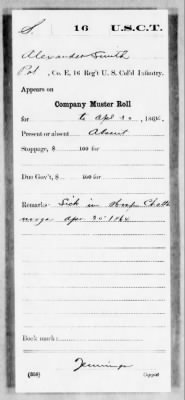 S 16 U.S.C.T.
Alexander Smith
Pvt, Co. E, 16 Reg't U. S. Col'd Infantry.
Appears on
Company Muster Roll
for to Apl 30, 1864.
Present or absent Absent
Stoppage, $ 100 for
Due Gov't, $ 100 for
Remarks: Sick in Hosp Chatta
nooga Apr 25 1864
Book mark:
Jennings
(358) Copyist.